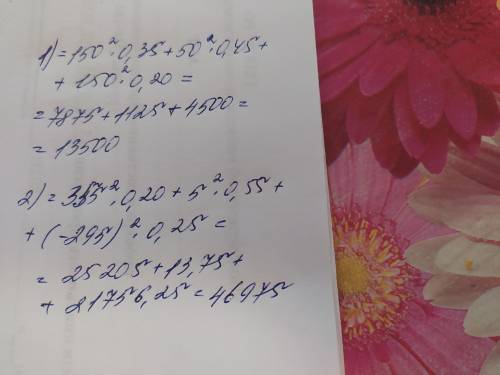 1) = 150² · 0,35 + 50² · 0,45 +
+ 150² · 0,20 =
= 7875 + 1125 + 4500 =
= 13500
2) = 355² · 0,20 + 5² · 0,55 +
+ (-295)² · 0,25 =
= 25205 + 13,75 +
+ 21756,25 = 46975